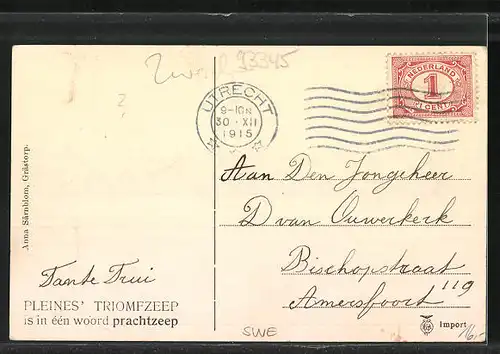 93345
NEDERLAND
1
1 CENT
UTRECHT
9-10N
30·XII
1915
Anna Särnblom, Grästorp.
Aan Den Jongeheer
D van Ouwerkerk
Bischopstraat
119
Amersfoort
Tante Trui
PLEINES' TRIOMFZEEP
is in één woord prachtzeep
Import
SWE
16,-